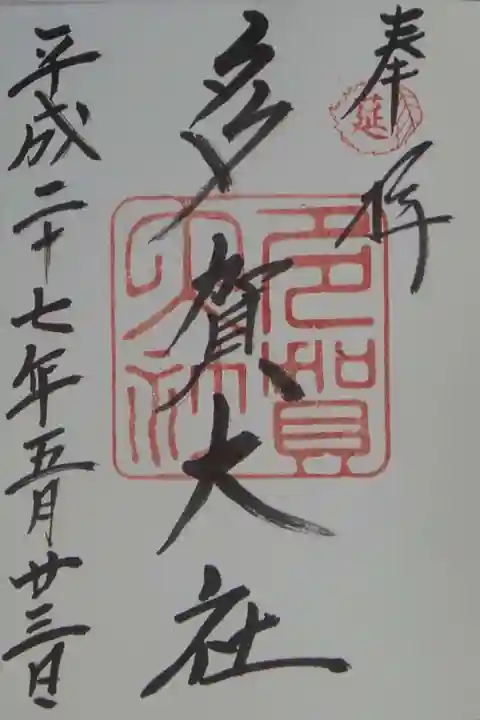 奉拝
延
多賀大社
多賀大社
平成二十七年五月廿三日